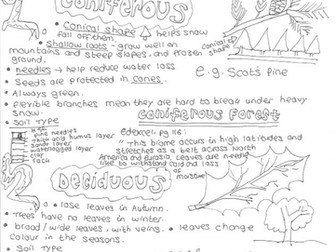 Coniferous
• Conical shape helps snow
fall off them.
• Shallow roots - grow well on
mountains and steep slopes, and frozen
ground.
conical
shape
• needles → help reduce water loss
• Seeds are protected in cones.
e.g. Scots Pine
• Always green.
• Flexible branches mean they are hard to break under heavy
snow.
• Soil Type
Coniferous Forest
pine needles
thin humus layer
sandy layer
waterlogged layer
clay
rock
Edexcel pg 116:
"This biome occurs in high latitudes and
stretches as a belt across North
America and Eurasia. Leaves are needle
like to withstand cold and loss
of
moisture
Deciduous
• lose leaves in Autumn.
• Trees have no leaves in winter.
• broad/wide leaves, with veins.
• leaves change
colour in the seasons.
• Soil Type